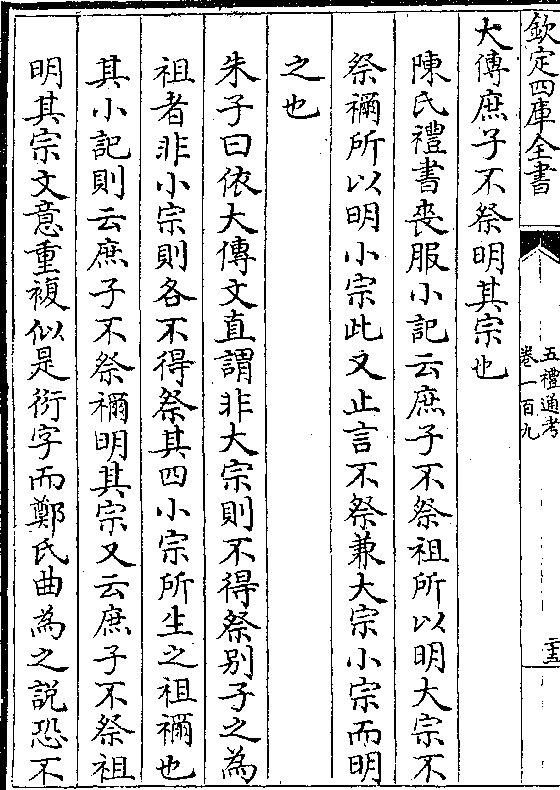 欽定四庫全書
五禮通考
卷一百九
二十三
大傳庶子不祭明其宗也
陳氏禮書喪服小記云庶子不祭祖所以明大宗不
祭禰所以明小宗此又止言不祭兼大宗小宗而明
之也
朱子曰依大傳文直謂非大宗則不得祭别子之為
祖者非小宗則各不得祭其四小宗所生之祖禰也
其小記則云庶子不祭禰明其宗又云庶子不祭祖
明其宗文意重複似是衍字而鄭氏曲為之說恐不